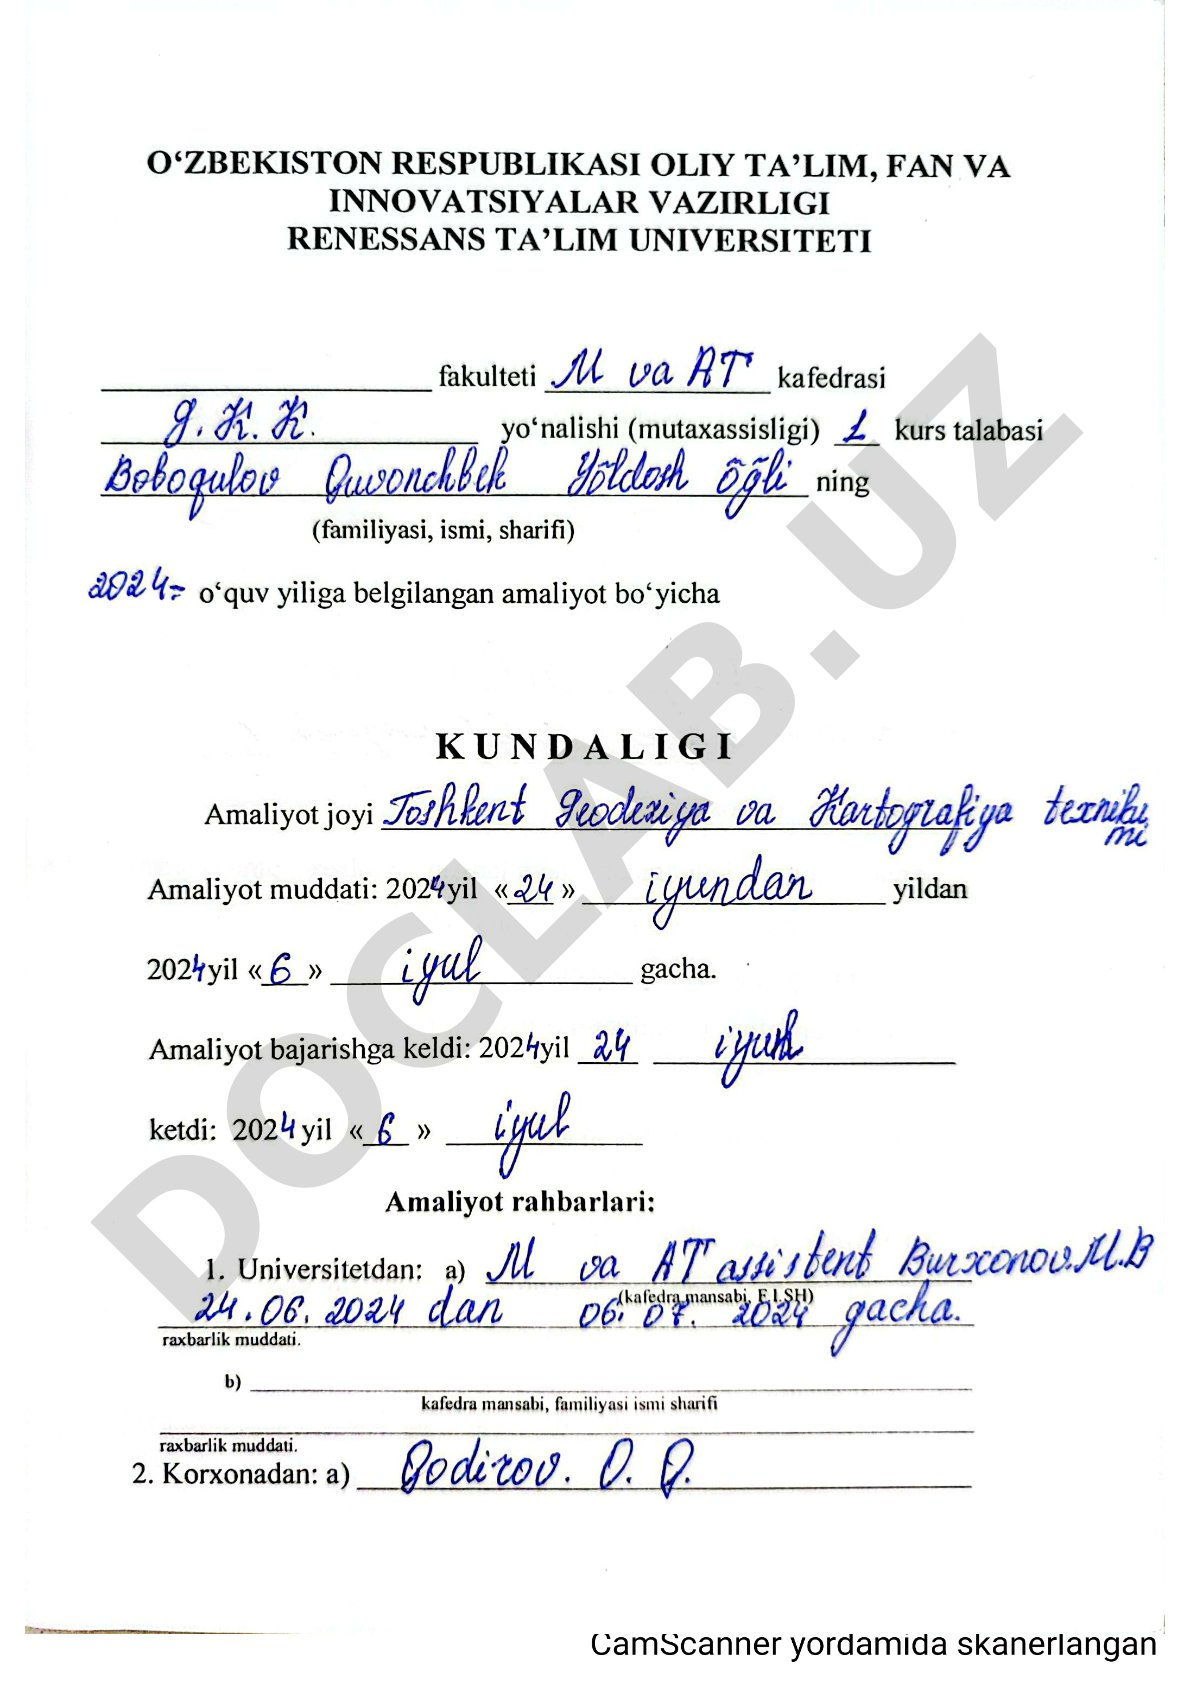 O‘ZBEKISTON RESPUBLIKASI OLIY TA’LIM, FAN VA
INNOVATSIYALAR VAZIRLIGI
RENESSANS TA’LIM UNIVERSITETI
____ fakulteti M va AT kafedrasi
G. K. K. yo‘nalishi (mutaxassisligi) 1 kurs talabasi
Boboqulov Quvonchbek Yõldosh õg̃li ning
(familiyasi, ismi, sharifi)
2024- o‘quv yiliga belgilangan amaliyot bo‘yicha
KUNDALIGI
Amaliyot joyi Toshkent Geodeziya va Kartografiya texniku
mi
Amaliyot muddati: 2024 yil «24» iyundan yildan
2024 yil «6» iyul gacha.
Amaliyot bajarishga keldi: 2024 yil 24 iyun
ketdi: 2024 yil «6» iyul
Amaliyot rahbarlari:
1. Universitetdan: a) M va AT assistent Burxonov.M.B
(kafedra mansabi, F.I.SH)
24.06.2024 dan 06.07.2024 gacha.
raxbarlik muddati.
b) ____
kafedra mansabi, familiyasi ismi sharifi
raxbarlik muddati.
2. Korxonadan: a) Qodirov. O. Q.
DOCLAB.UZ
CamScanner yordamida skanerlangan